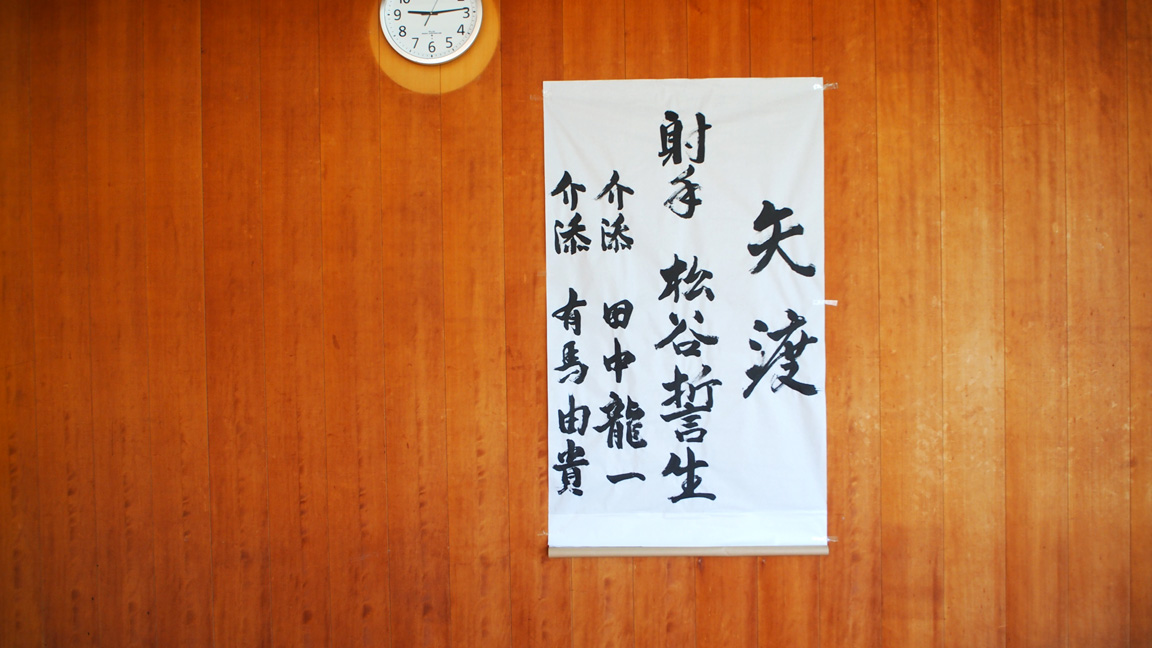 矢渡
射手 松谷誓生
介添 田中龍一
介添 有馬由貴
10
9
8
7
6
5
4
3